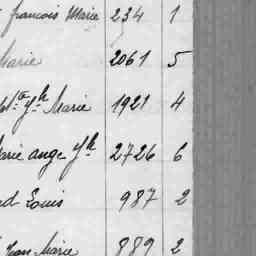 françois Marie 234 1
Marie 2061 5
Jh Marie 1921 4
Marie ange Jh 2726 6
Louis 987 2
Jean Marie 889 2